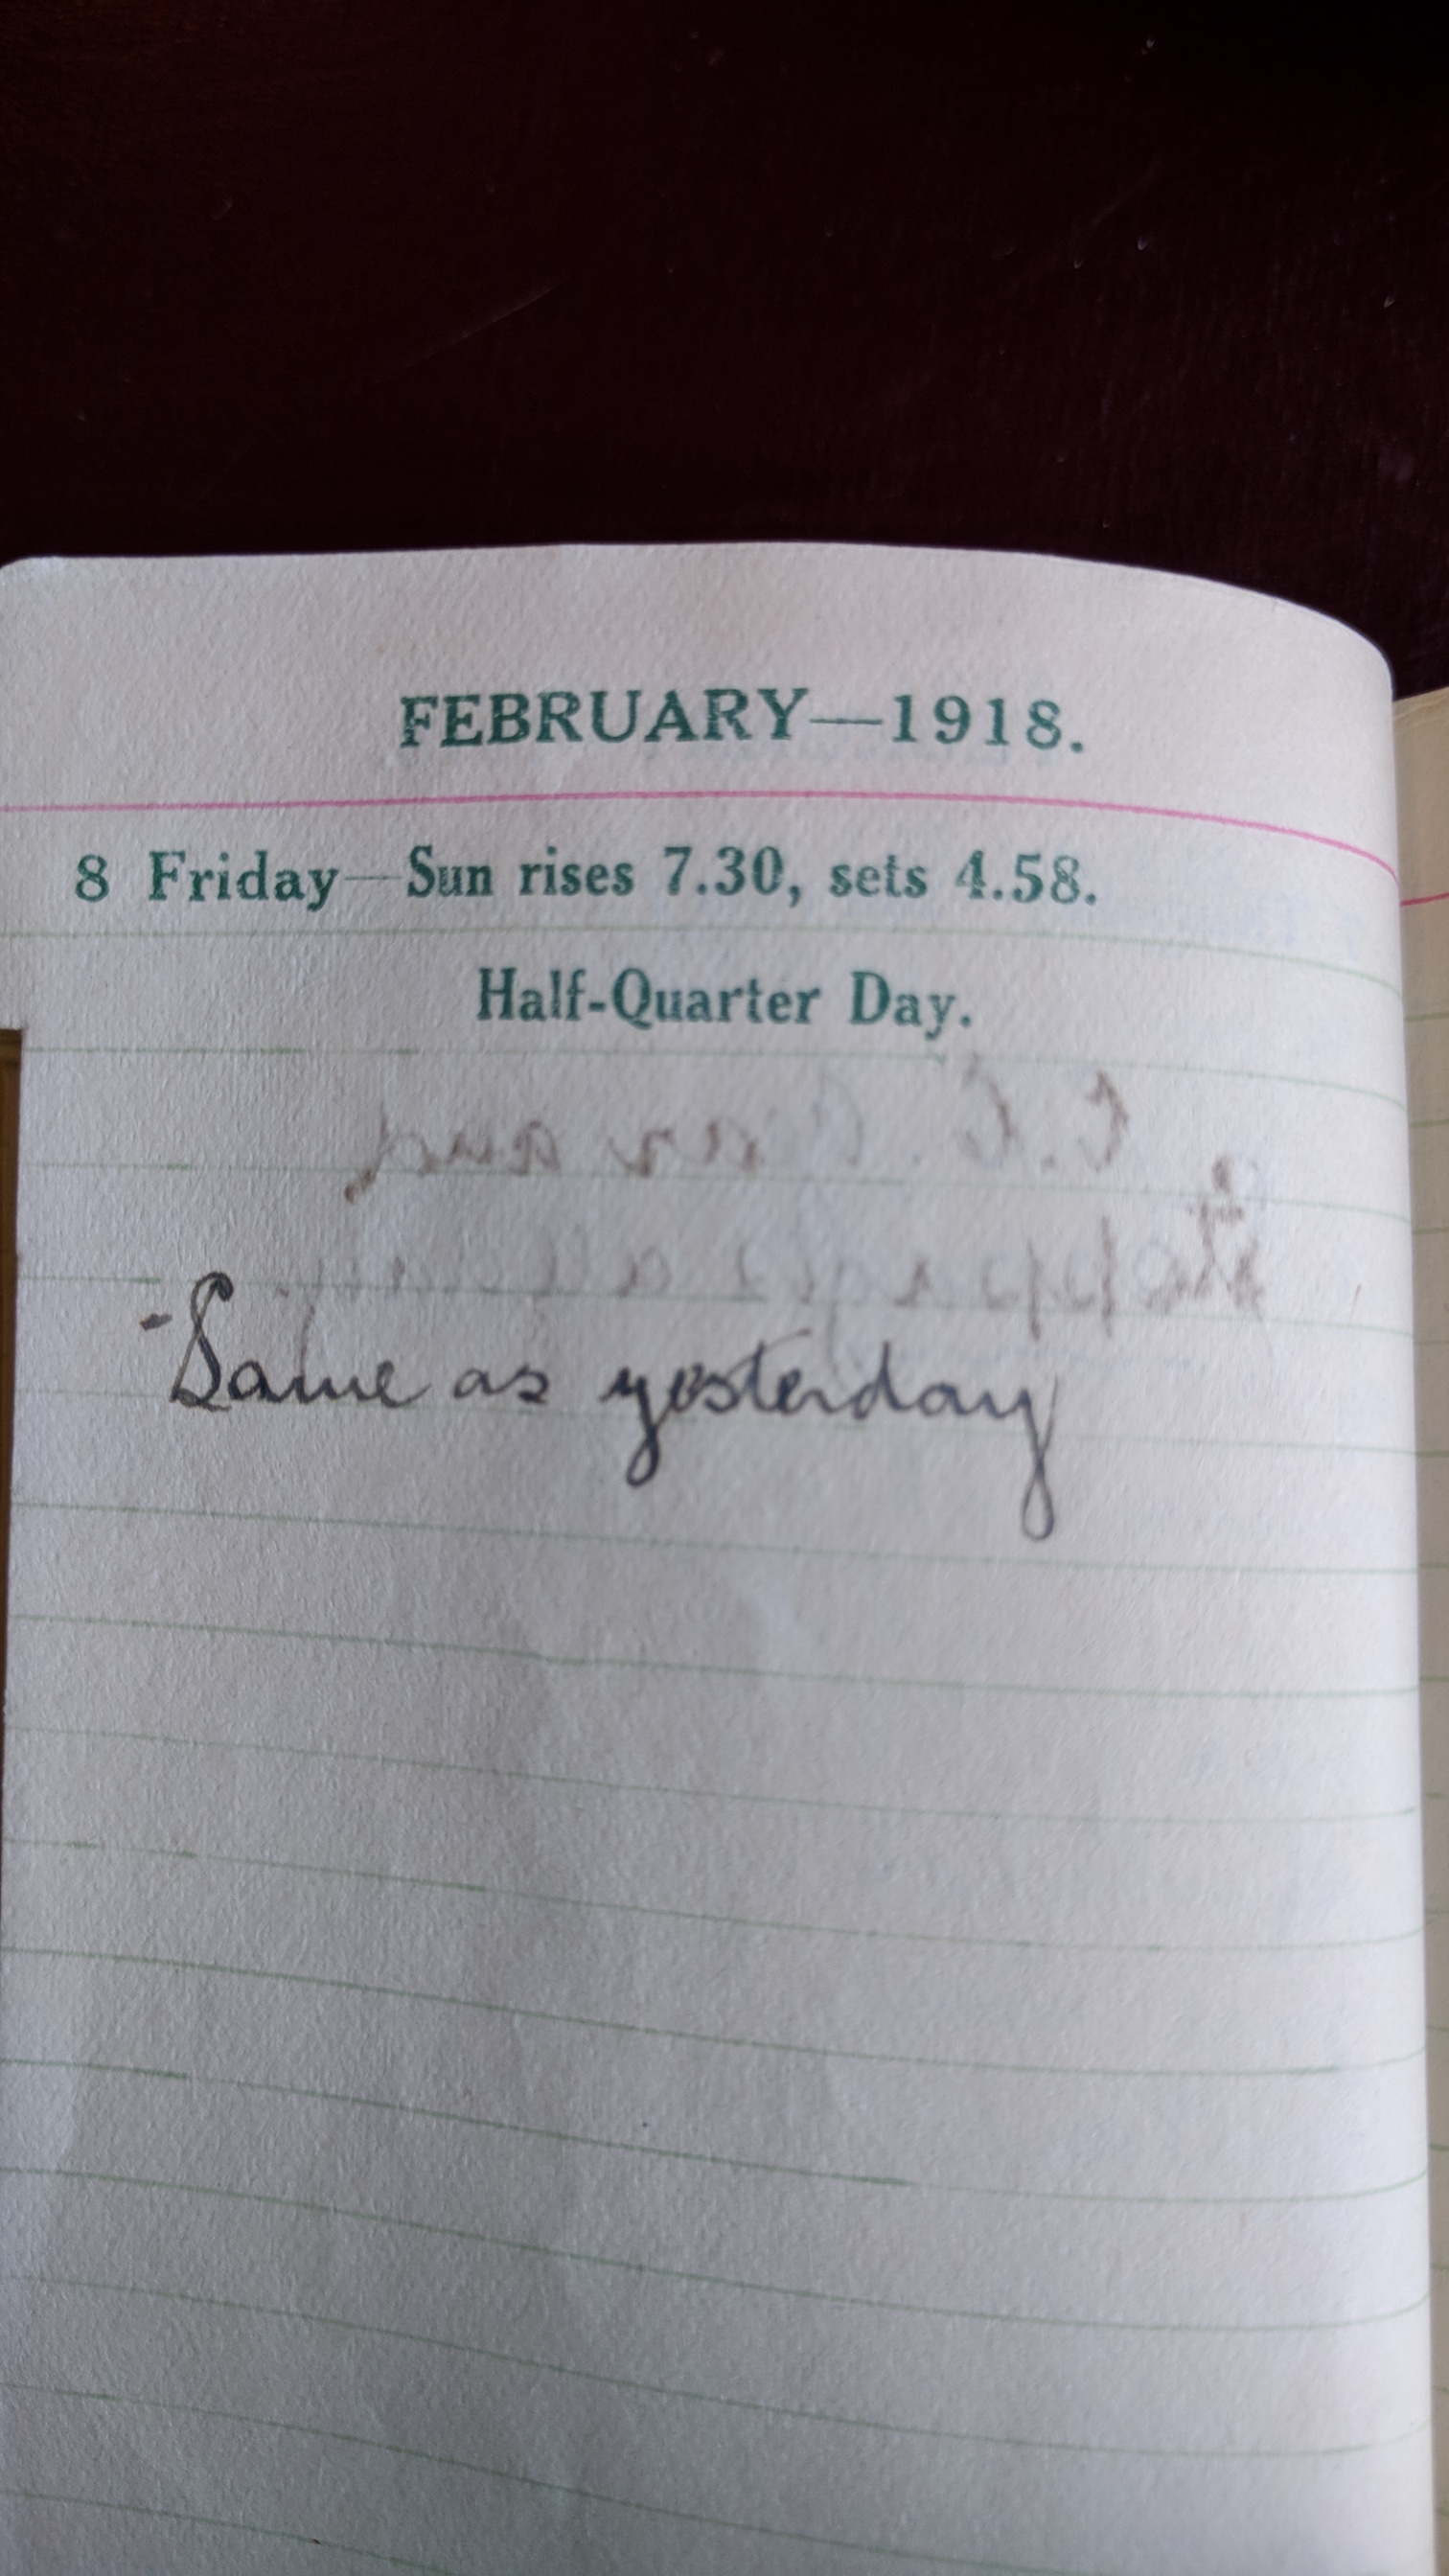 FEBRUARY—1918.
8 Friday—Sun rises 7.30, sets 4.58.
Half-Quarter Day.
Same as yesterday